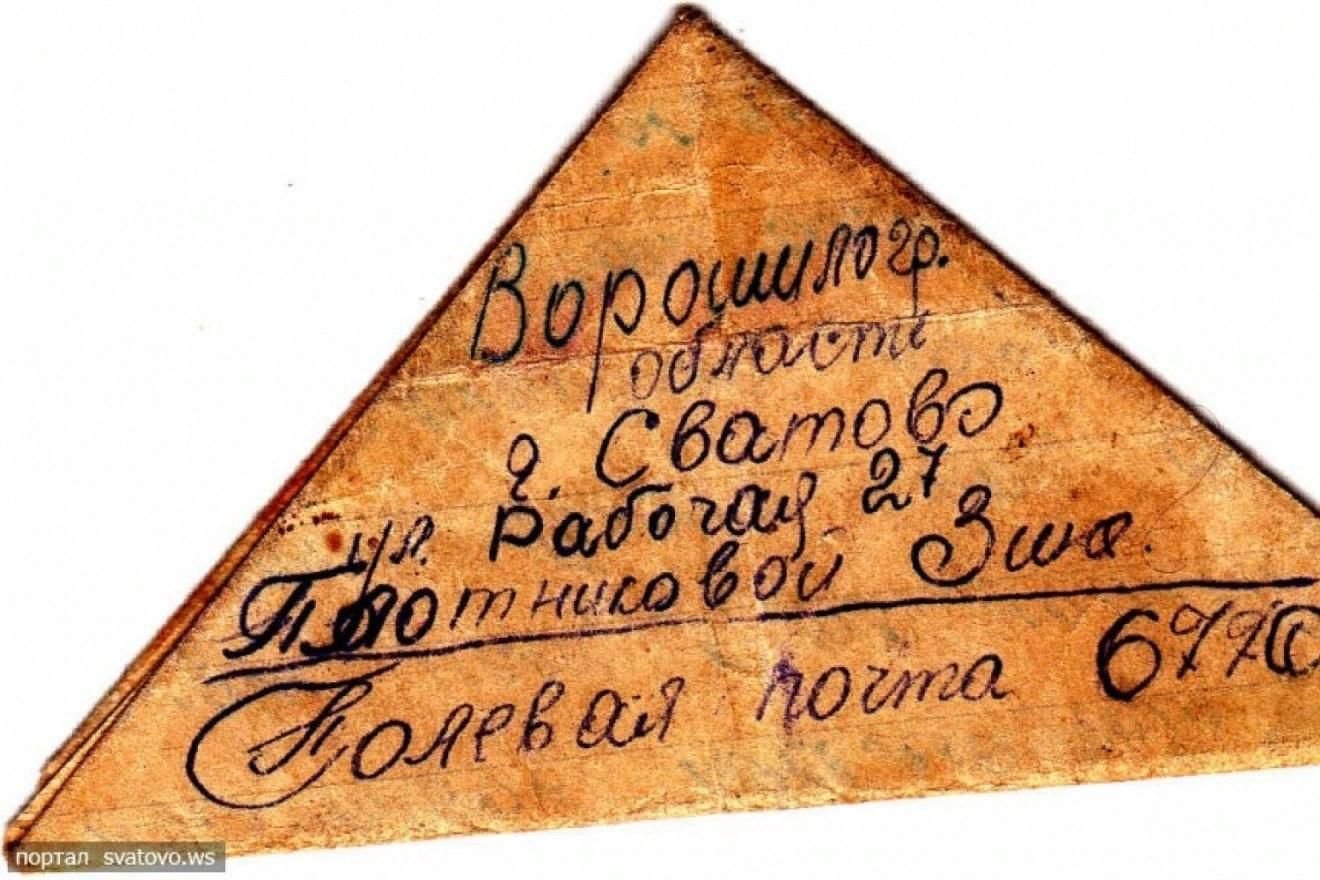 Ворошилогр.
область
г. Сватово
ул. Рабочая 27
Плотниковой
Полевая почта
портал svatovo.ws